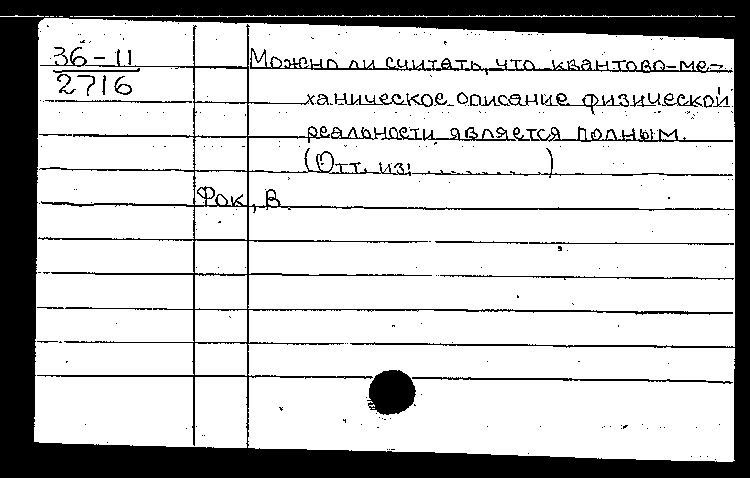 36-11 Можно ли считать, что квантово-ме-
2716 ханическое описание физической
реальности является полным.
(Отт. из: ..........)
Фок, В.